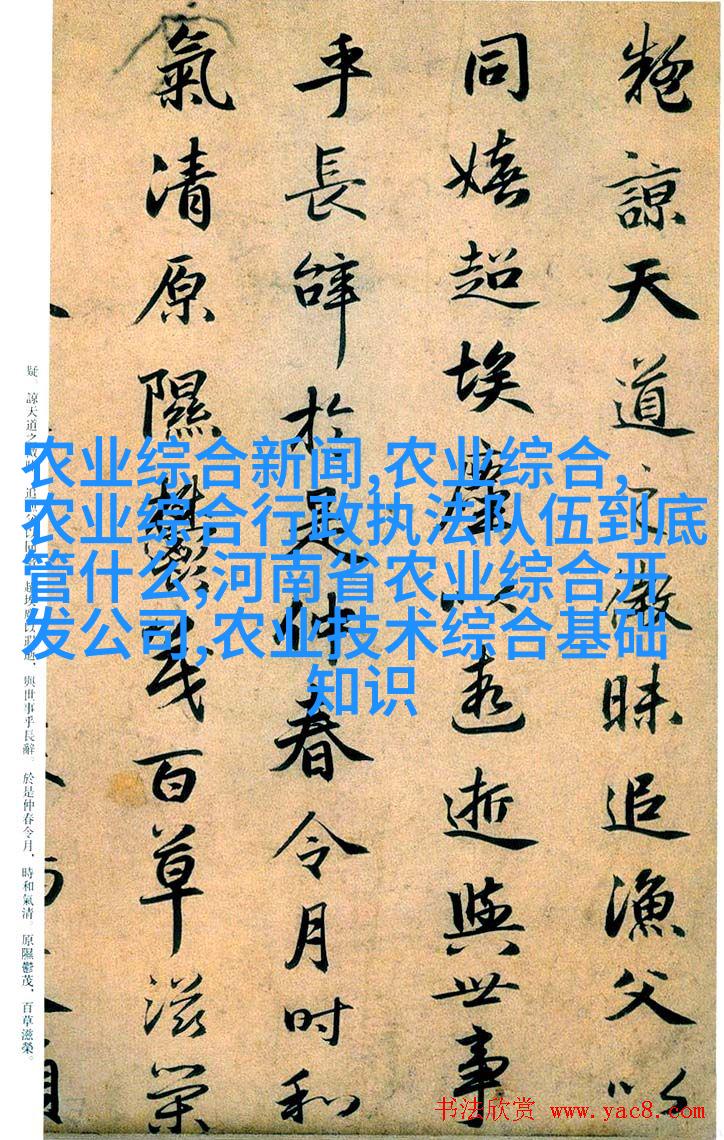 疑諒天道之微昧追漁父以
同嬉超埃塵以遐逝與世事
乎長辭於是仲春令月时和
氣清原隰鬱茂百草滋榮
疑。諒天道之微昧，追漁父以同嬉。超埃塵以遐逝，與世事乎長辭。於是仲春令月，時和氣清。原隰鬱茂，百草滋榮。
农业综合新闻,农业综合,
农业综合行政执法队伍到底
管什么,河南省农业综合开
发公司,农业技术综合基础
知识
书法欣赏 www.yac8.com